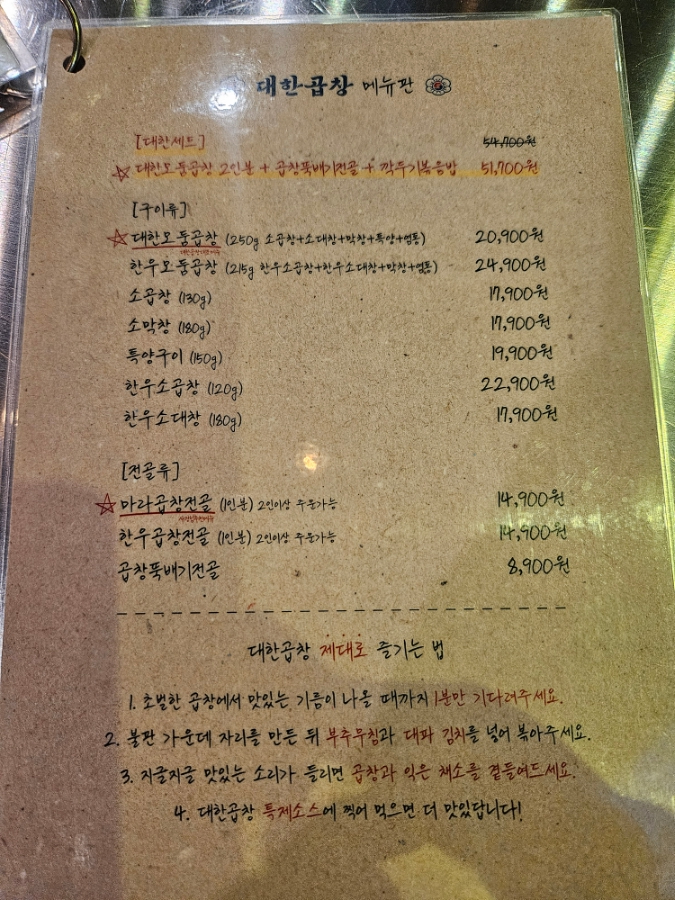 대한곱창 메뉴판
[대한세트] 54,700원
☆ 대한모둠곱창 2인분 + 곱창뚝배기전골 + 깍두기볶음밥 51,700원
[구이류]
☆ 대한모둠곱창 (250g 소곱창+소대창+막창+특양+염통) 20,900원
한우모둠곱창 (215g 한우소곱창+한우소대창+막창+염통) 24,900원
소곱창 (130g) 17,900원
소막창 (180g) 17,900원
특양구이 (150g) 19,900원
한우소곱창 (120g) 22,900원
한우소대창 (180g) 17,900원
[전골류]
☆ 마라곱창전골 (1인분) 2인이상 주문가능 14,900원
한우곱창전골 (1인분) 2인이상 주문가능 14,900원
곱창뚝배기전골 8,900원
대한곱창 제대로 즐기는 법
1. 초벌한 곱창에서 맛있는 기름이 나올 때까지 1분만 기다려주세요.
2. 불판 가운데 자리를 만든 뒤 부추무침과 대파 김치를 넣어 볶아주세요.
3. 지글지글 맛있는 소리가 들리면 곱창과 익은 채소를 곁들여드세요.
4. 대한곱창 특제소스에 찍어 먹으면 더 맛있답니다!